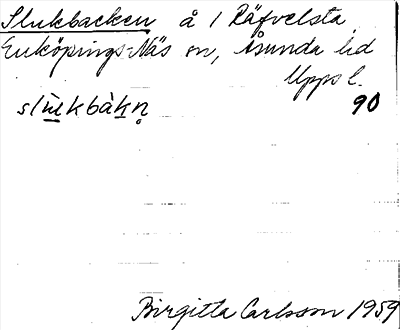 Slukbacken å 1 Räfvelsta,
Enköpings-Näs sn, Åsunda hd
Upps l.
slùkbàkn̥ 90
Birgitta Carlsson 1959